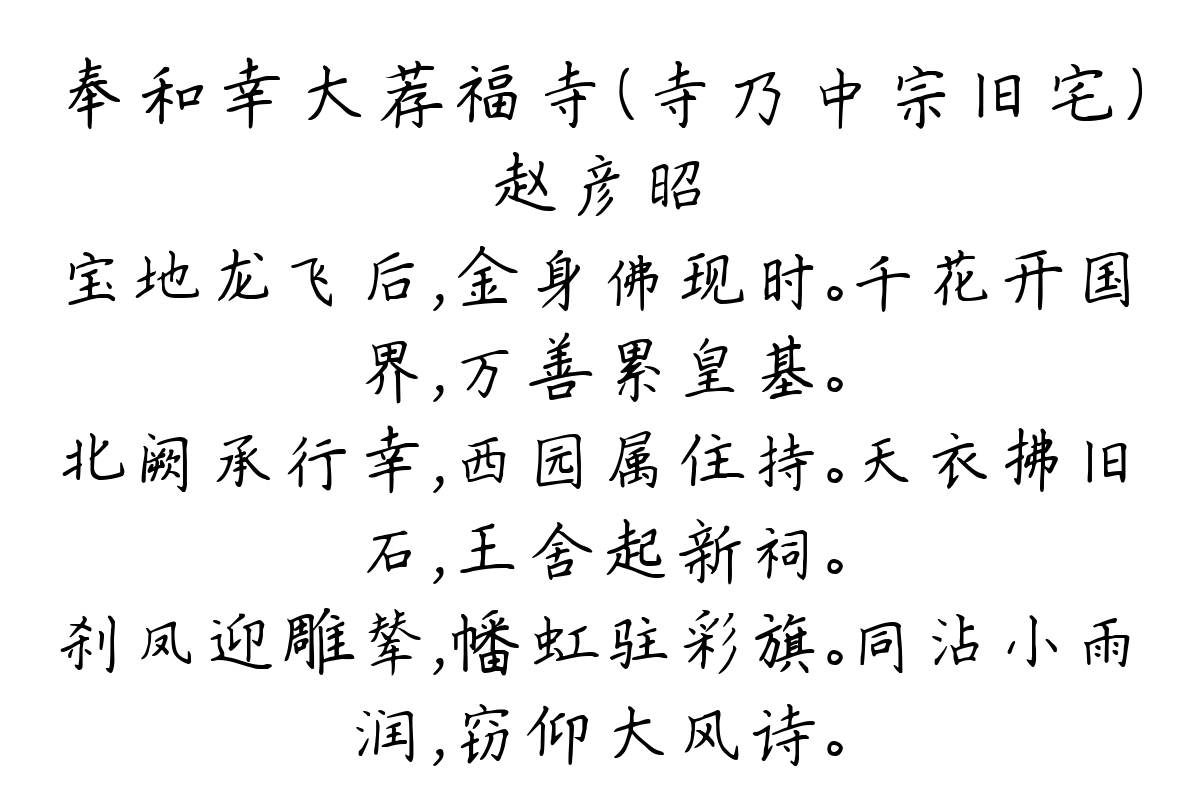 奉和幸大荐福寺(寺乃中宗旧宅)
赵彦昭
宝地龙飞后,金身佛现时。千花开国
界,万善累皇基。
北阙承行幸,西园属住持。天衣拂旧
石,王舍起新祠。
刹凤迎雕辇,幡虹驻彩旗。同沾小雨
润,窃仰大风诗。